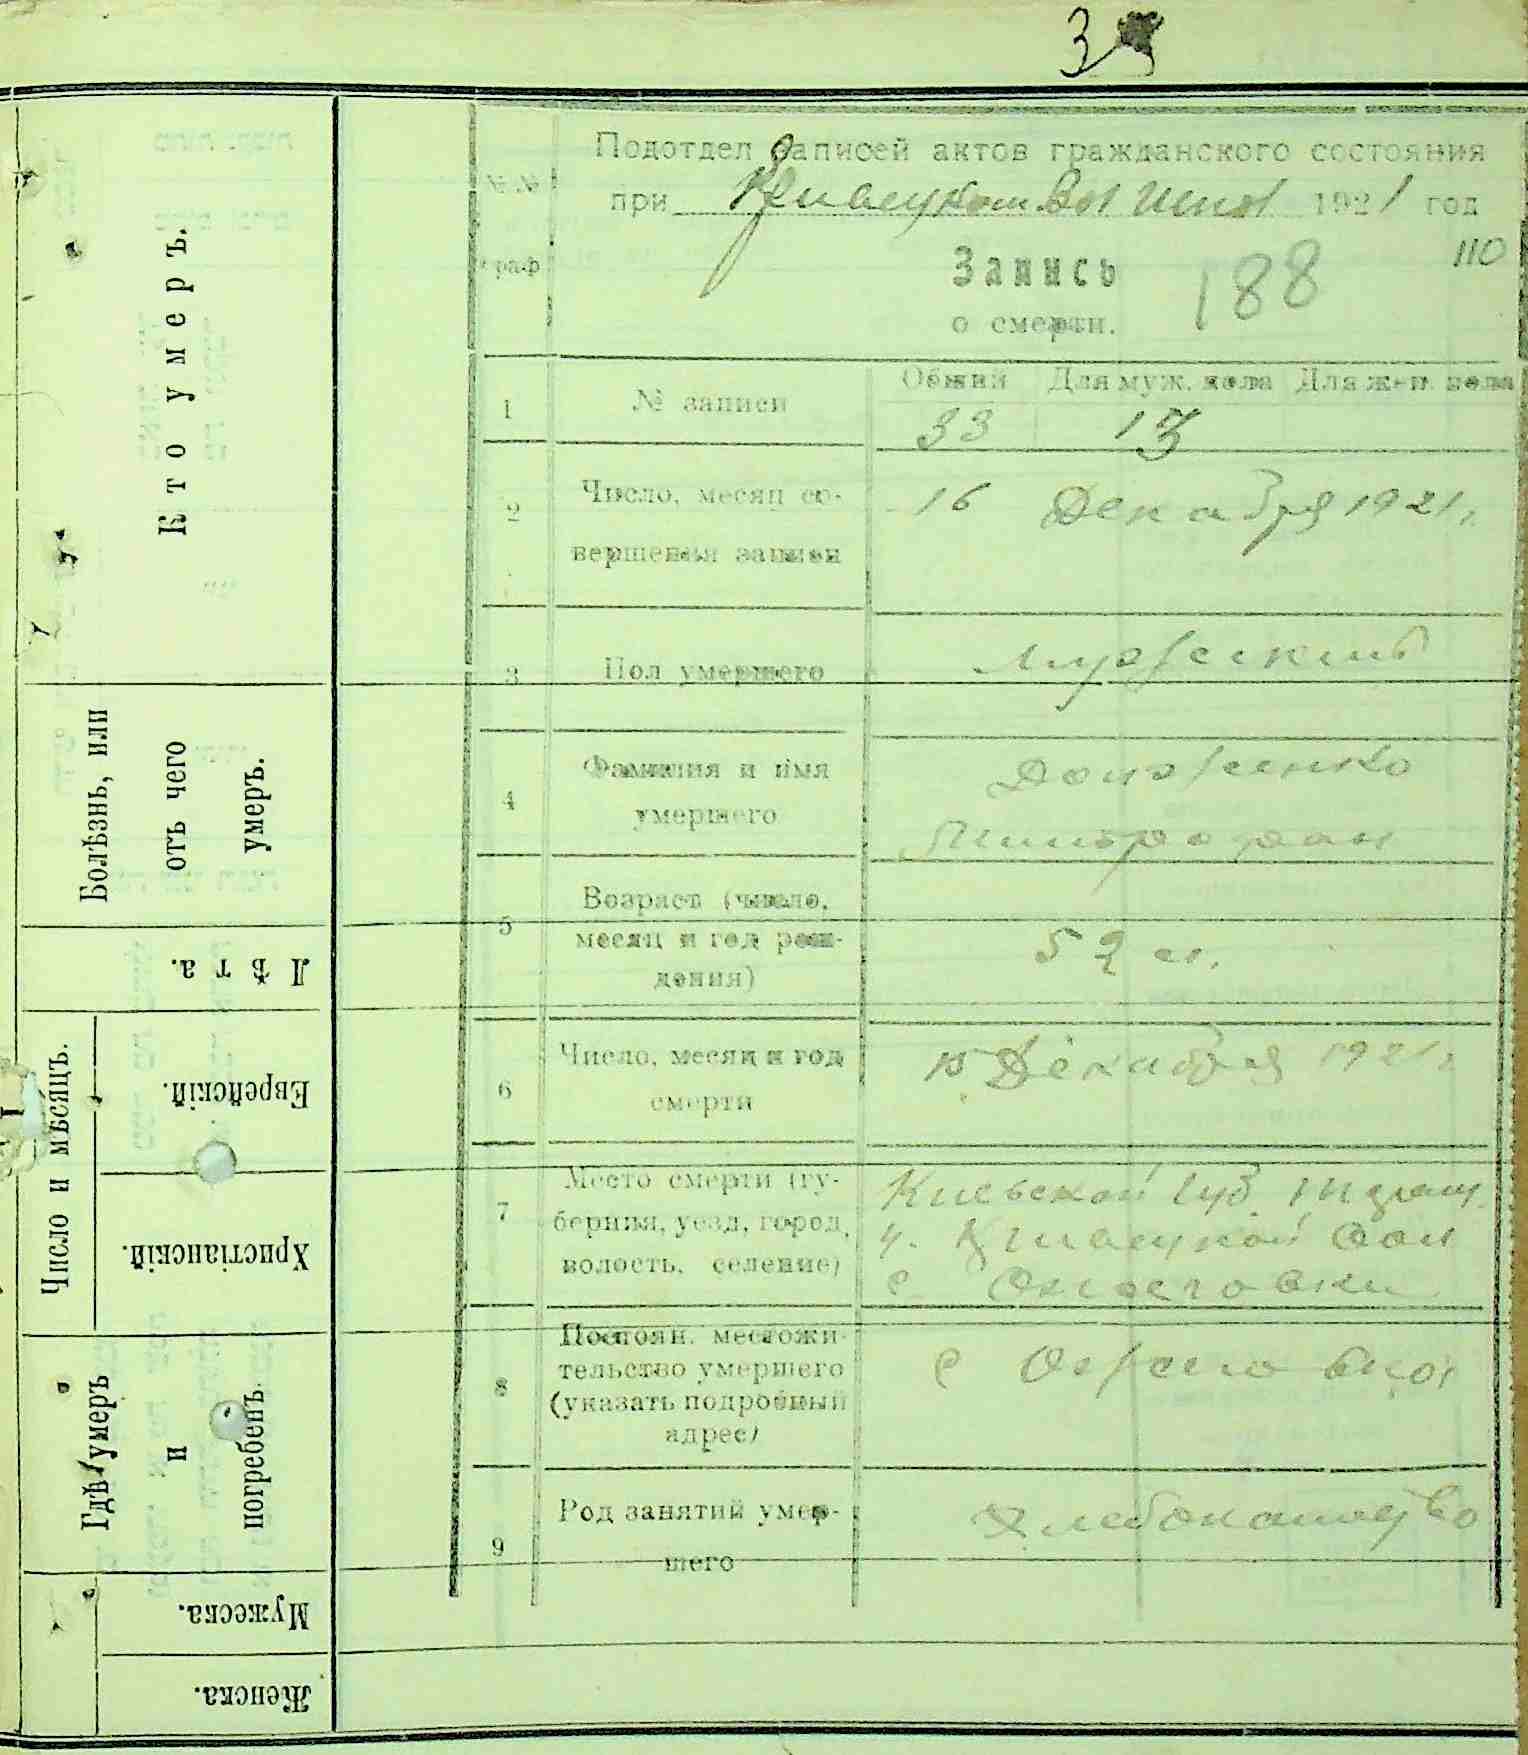 3
Подотдел Записей актов гражданского состояния
при Кривецком Вол 1921 год
110
№ №
граф
Запись
188
о смерти.
Общий Для муж. пола Для жен. пола
1 № записи 33 13
2 Число, месяц со-
вершения записи
16 Декабря 1921 г.
3 Пол умершего Мужский
4 Фамилия и имя
умершего
Долженко
Митрофан
5 Возраст (число,
месяц и год рож-
дения)
52 л.
6 Число, месяц и год
смерти
15 Декабря 1921 г
7 Место смерти (гу-
берния, уезд, город,
волость, селение)
Киевской губ.
у. Кривецкой вол
с
8 Постоян. местожи-
тельство умершего
(указать подробный
адрес)
с
9 Род занятий умер-
шего
Хлебопашество
Кто умеръ.
Болѣзнь, или
отъ чего
умеръ.
Лѣта.
Число и мѣсяцъ.
Еврейскій.
Христіанскій.
Гдѣ умеръ
и
погребенъ.
Мужеска.
Женска.